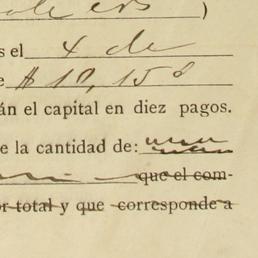 )
s el 4 de
e $ 10,15
án el capital en diez pagos.
e la cantidad de:
que el com-
or total y que corresponde a